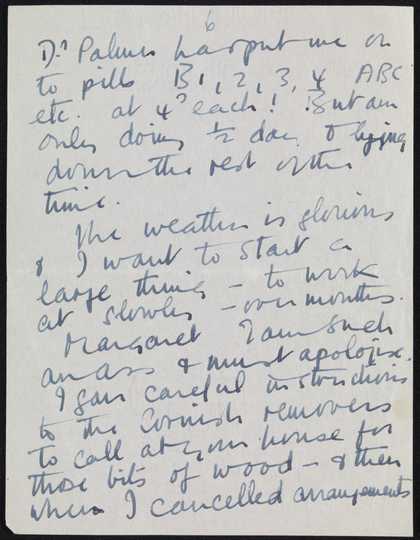 6
Dr Palmer has put me on
to pills B1, 2, 3, 4 ABC
etc. at 4d each! But am
only doing ½ day & lying
down the rest of the
time.
The weather is glorious
& I want to start a
large thing – to work
at slowly – over months.
Margaret I am such
an ass & must apologise.
I gave careful instructions
to the Cornish removers
to call at your house for
those bits of wood – & then
when I cancelled arrangements